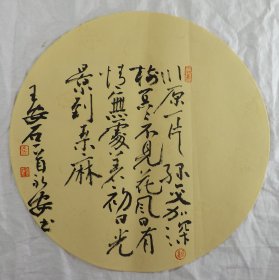 川原一片绿交加深
树冥々不见花风日有
情無處著初回光
景到桑麻
王安石一首永安书